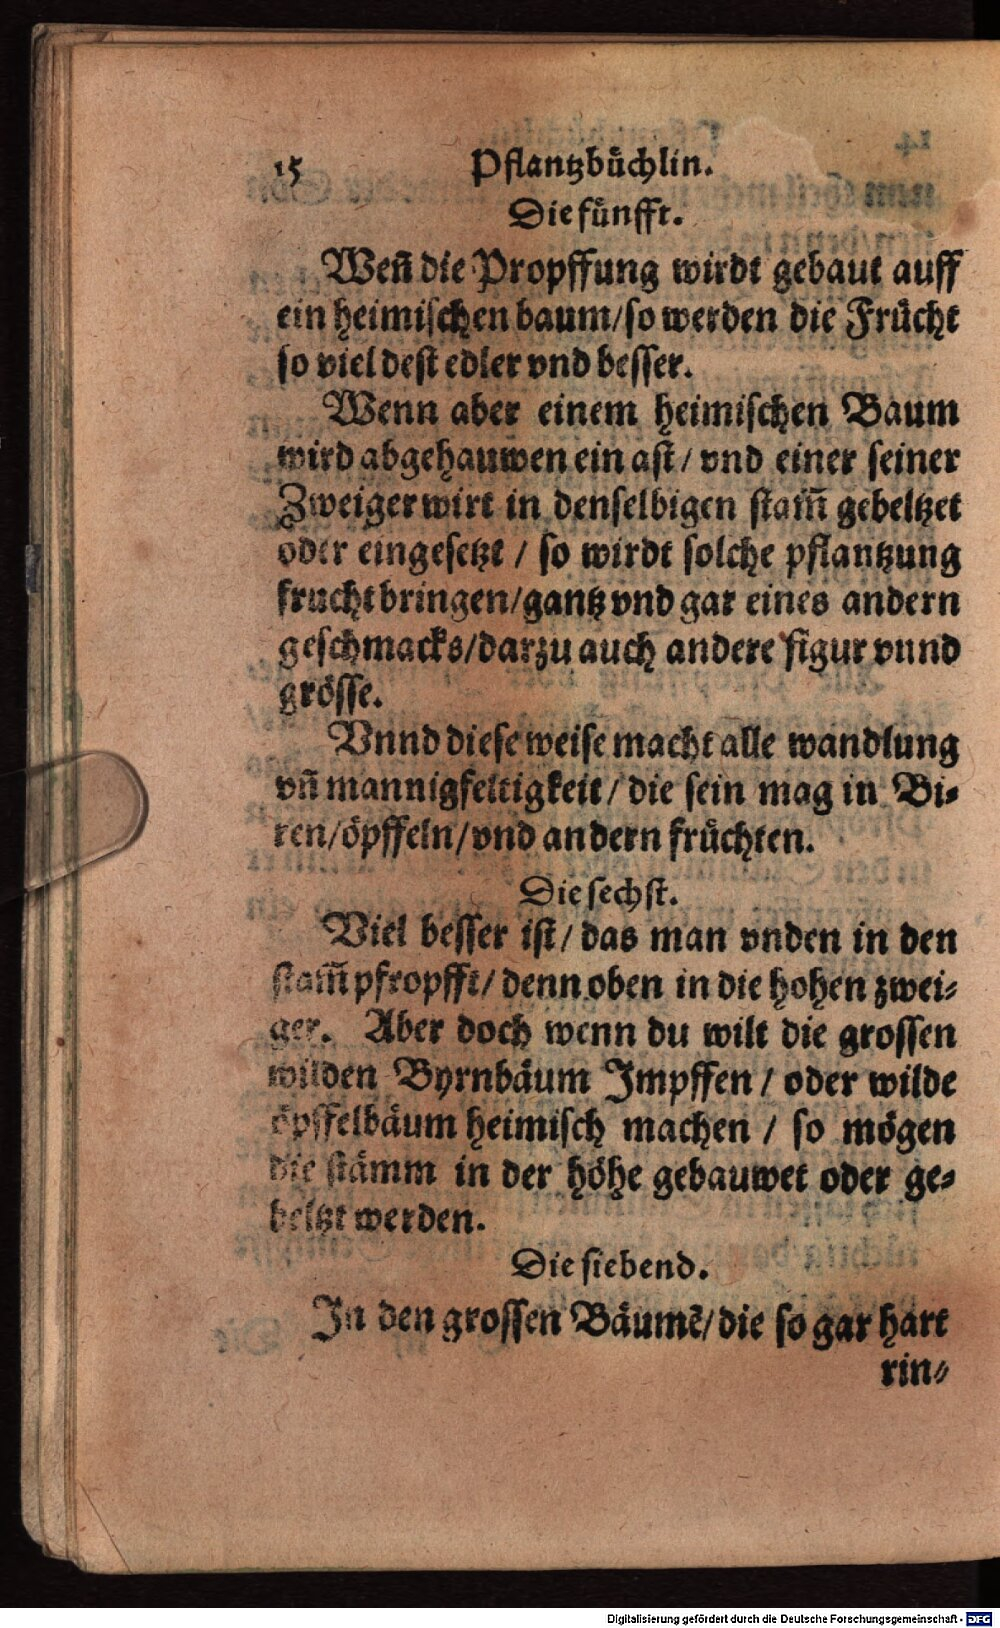 15 Pflantzbüchlin.
Die fünfft.
Weñ die Propffung wirdt gebaut auff
ein heimischen baum/so werden die Frücht
so viel dest edler vnd besser.
Wenn aber einem heimischen Baum
wird abgehauwen ein ast/ vnd einer seiner
Zweiger wirt in denselbigen stam̃ gebeltzet
oder eingesetzt / so wirdt solche pflantzung
frucht bringen/gantz vnd gar eines andern
geschmacks/darzu auch andere figur vnnd
grösse.
Vnnd diese weise macht alle wandlung
vñ mannigfeltigkeit/ die sein mag in Bi-
ren/öpffeln/vnd andern früchten.
Die sechst.
Viel besser ist/ das man vnden in den
stam̃ pfropfft/ denn oben in die hohen zwei-
ger. Aber doch wenn du wilt die grossen
wilden Byrnbäum Impffen / oder wilde
öpffelbäum heimisch machen / so mögen
die stämm in der höhe gebauwet oder ge-
beltzt werden.
Die siebend.
In den grossen Bäumẽ/die so gar hart
rin-
Digitalisierung gefördert durch die Deutsche Forschungsgemeinschaft - DFG